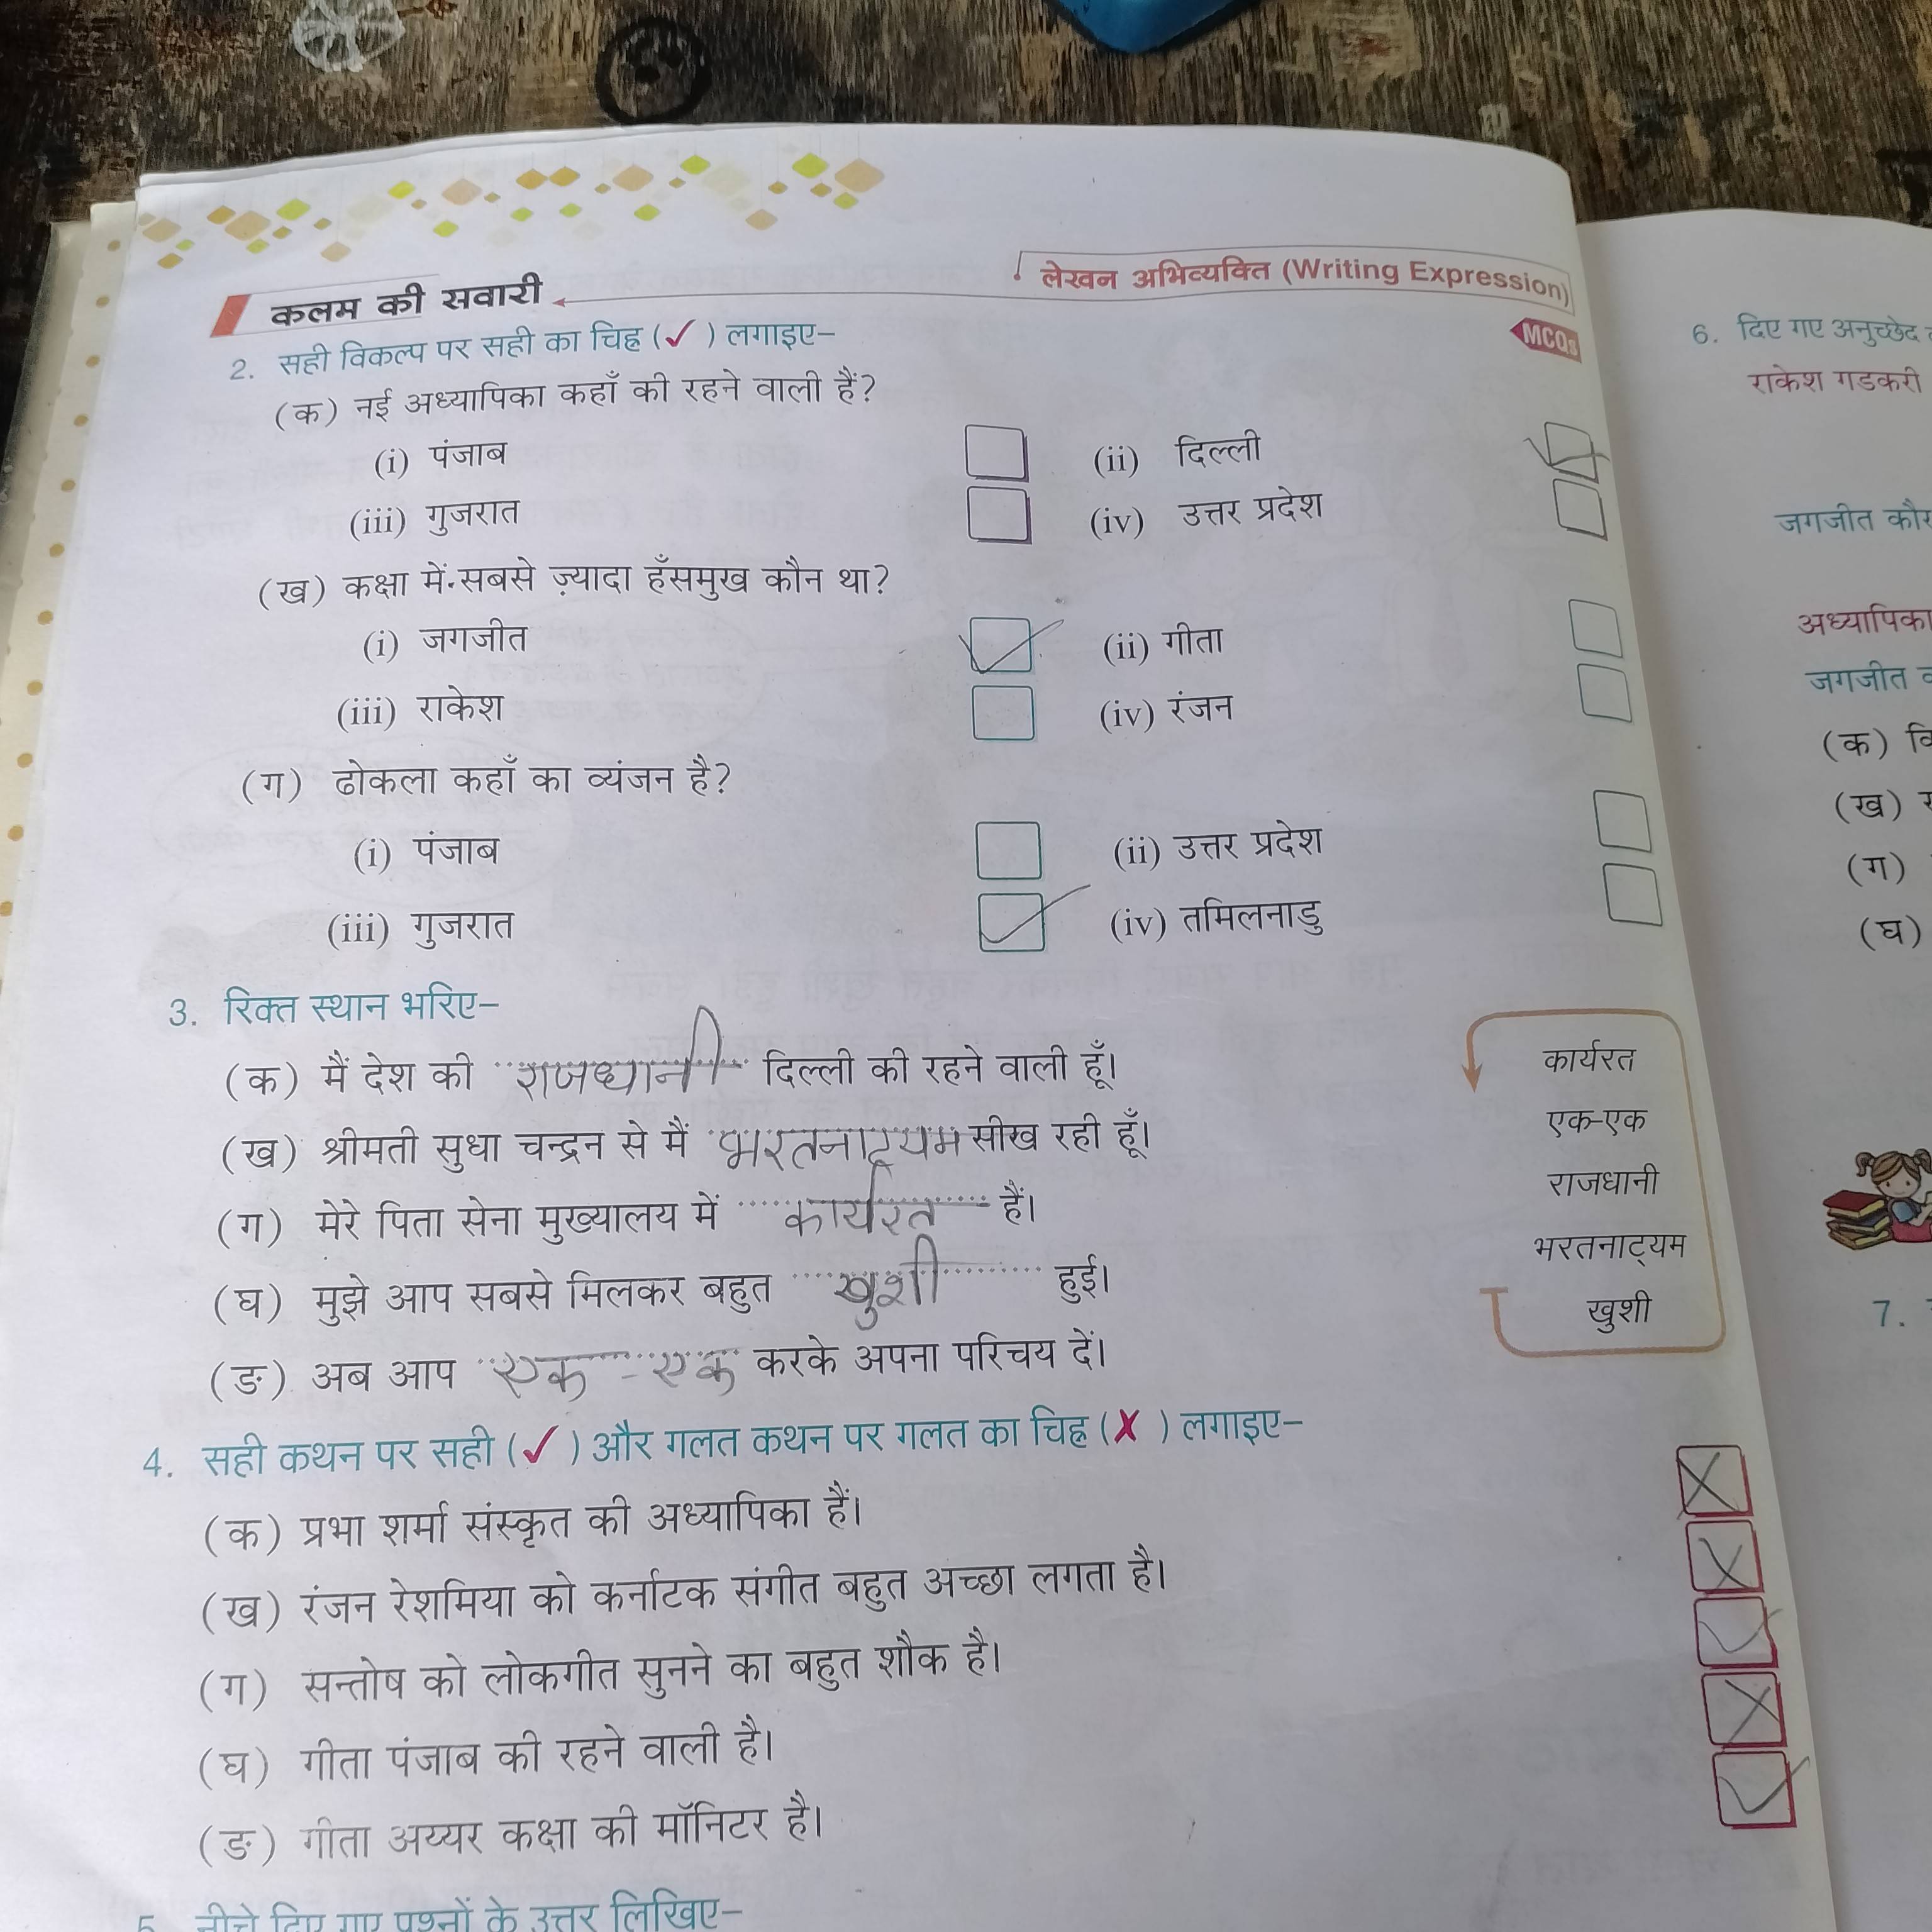 लेखन अभिव्यक्ति (Writing Expression)
कलम की सवारी
2. सही विकल्प पर सही का चिह्न (✓) लगाइए–
MCQs
(क) नई अध्यापिका कहाँ की रहने वाली हैं?
(i) पंजाब (ii) दिल्ली ✓
(iii) गुजरात (iv) उत्तर प्रदेश
(ख) कक्षा में सबसे ज़्यादा हँसमुख कौन था?
(i) जगजीत ✓ (ii) गीता
(iii) राकेश (iv) रंजन
(ग) ढोकला कहाँ का व्यंजन है?
(i) पंजाब (ii) उत्तर प्रदेश
(iii) गुजरात ✓ (iv) तमिलनाडु
3. रिक्त स्थान भरिए–
(क) मैं देश की राजधानी दिल्ली की रहने वाली हूँ।
(ख) श्रीमती सुधा चन्द्रन से मैं भरतनाट्यम सीख रही हूँ।
(ग) मेरे पिता सेना मुख्यालय में कार्यरत हैं।
(घ) मुझे आप सबसे मिलकर बहुत खुशी हुई।
(ङ) अब आप एक-एक करके अपना परिचय दें।
कार्यरत
एक-एक
राजधानी
भरतनाट्यम
खुशी
4. सही कथन पर सही (✓) और गलत कथन पर गलत का चिह्न (✗) लगाइए–
(क) प्रभा शर्मा संस्कृत की अध्यापिका हैं। ✗
(ख) रंजन रेशमिया को कर्नाटक संगीत बहुत अच्छा लगता है। ✗
(ग) सन्तोष को लोकगीत सुनने का बहुत शौक है। ✓
(घ) गीता पंजाब की रहने वाली है। ✗
(ङ) गीता अय्यर कक्षा की मॉनिटर है। ✓
5. नीचे दिए गए प्रश्नों के उत्तर लिखिए–
6. दिए गए अनुच्छेद
राकेश गडकरी
जगजीत कौर
अध्यापिका
जगजीत
(क)
(ख)
(ग)
(घ)
7.